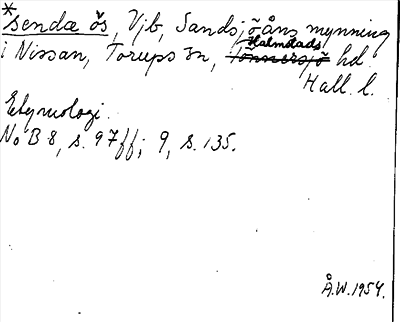 *sendæ ōs, Vjb, Sandsjöåns mynning
i Nissan, Torups sn, Halmstads hd
Hall. l.
Etymologi.
NoB 8, s. 97ff; 9, s. 135.
Å.W. 1954.